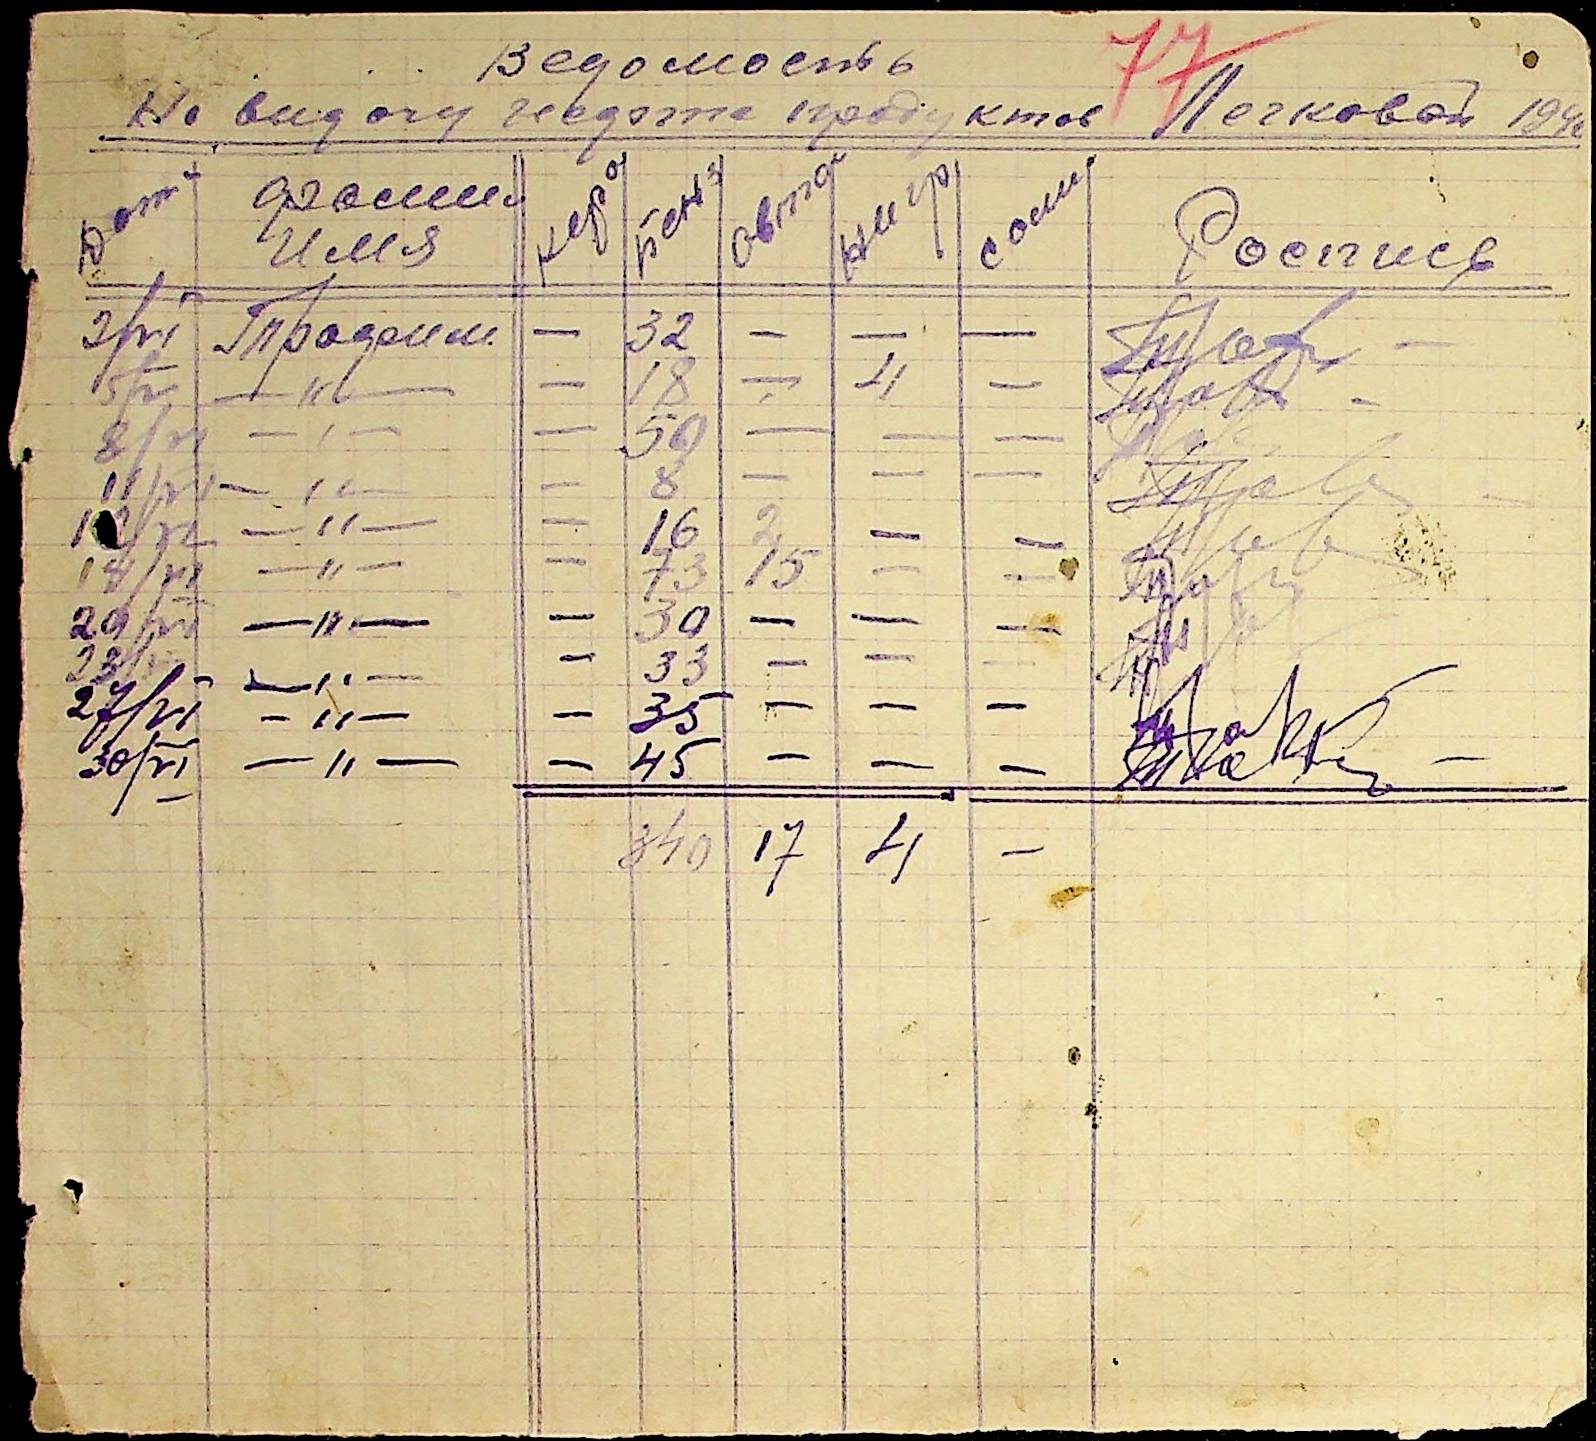 77
Ведомость
На видачу нефте продуктов Легковой 194
Дат фамил имя кер бенз автол нигр сол Роспись
2/VI — 32 — — —
5/VI —"— — 18 — 4 —
8/VI —"— — 50 — — —
11/VI —"— — 8 — — —
12/VI —"— — 16 2 — —
14/VI —"— — 73 15 — —
20/VI —"— — 30 — — —
23/VI —"— — 33 — — —
27/VI —"— — 35 — — —
30/VI —"— — 45 — — —
340 17 4 —